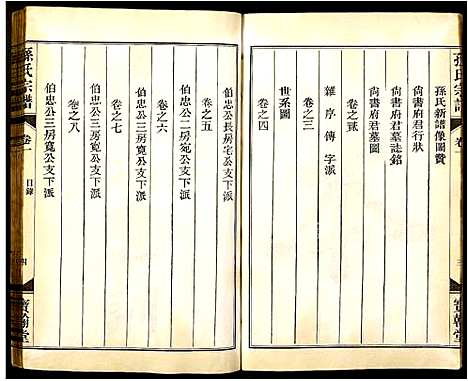 孫氏宗譜
卷一
三
寶翰堂
孫氏新譜像圖贊
尙書府君行狀
尙書府君墓誌銘
尙書府君墓圖
卷之貳
雜序傳字派
卷之三
世系圖
卷之四
伯忠公長房宅公支下派
卷之五
伯忠公二房宛公支下派
卷之六
伯忠公三房寬公支下派
卷之七
伯忠公三房寬公支下派
卷之八
伯忠公三房寬公支下派
孫氏宗譜
卷一
目錄
四
寶翰堂